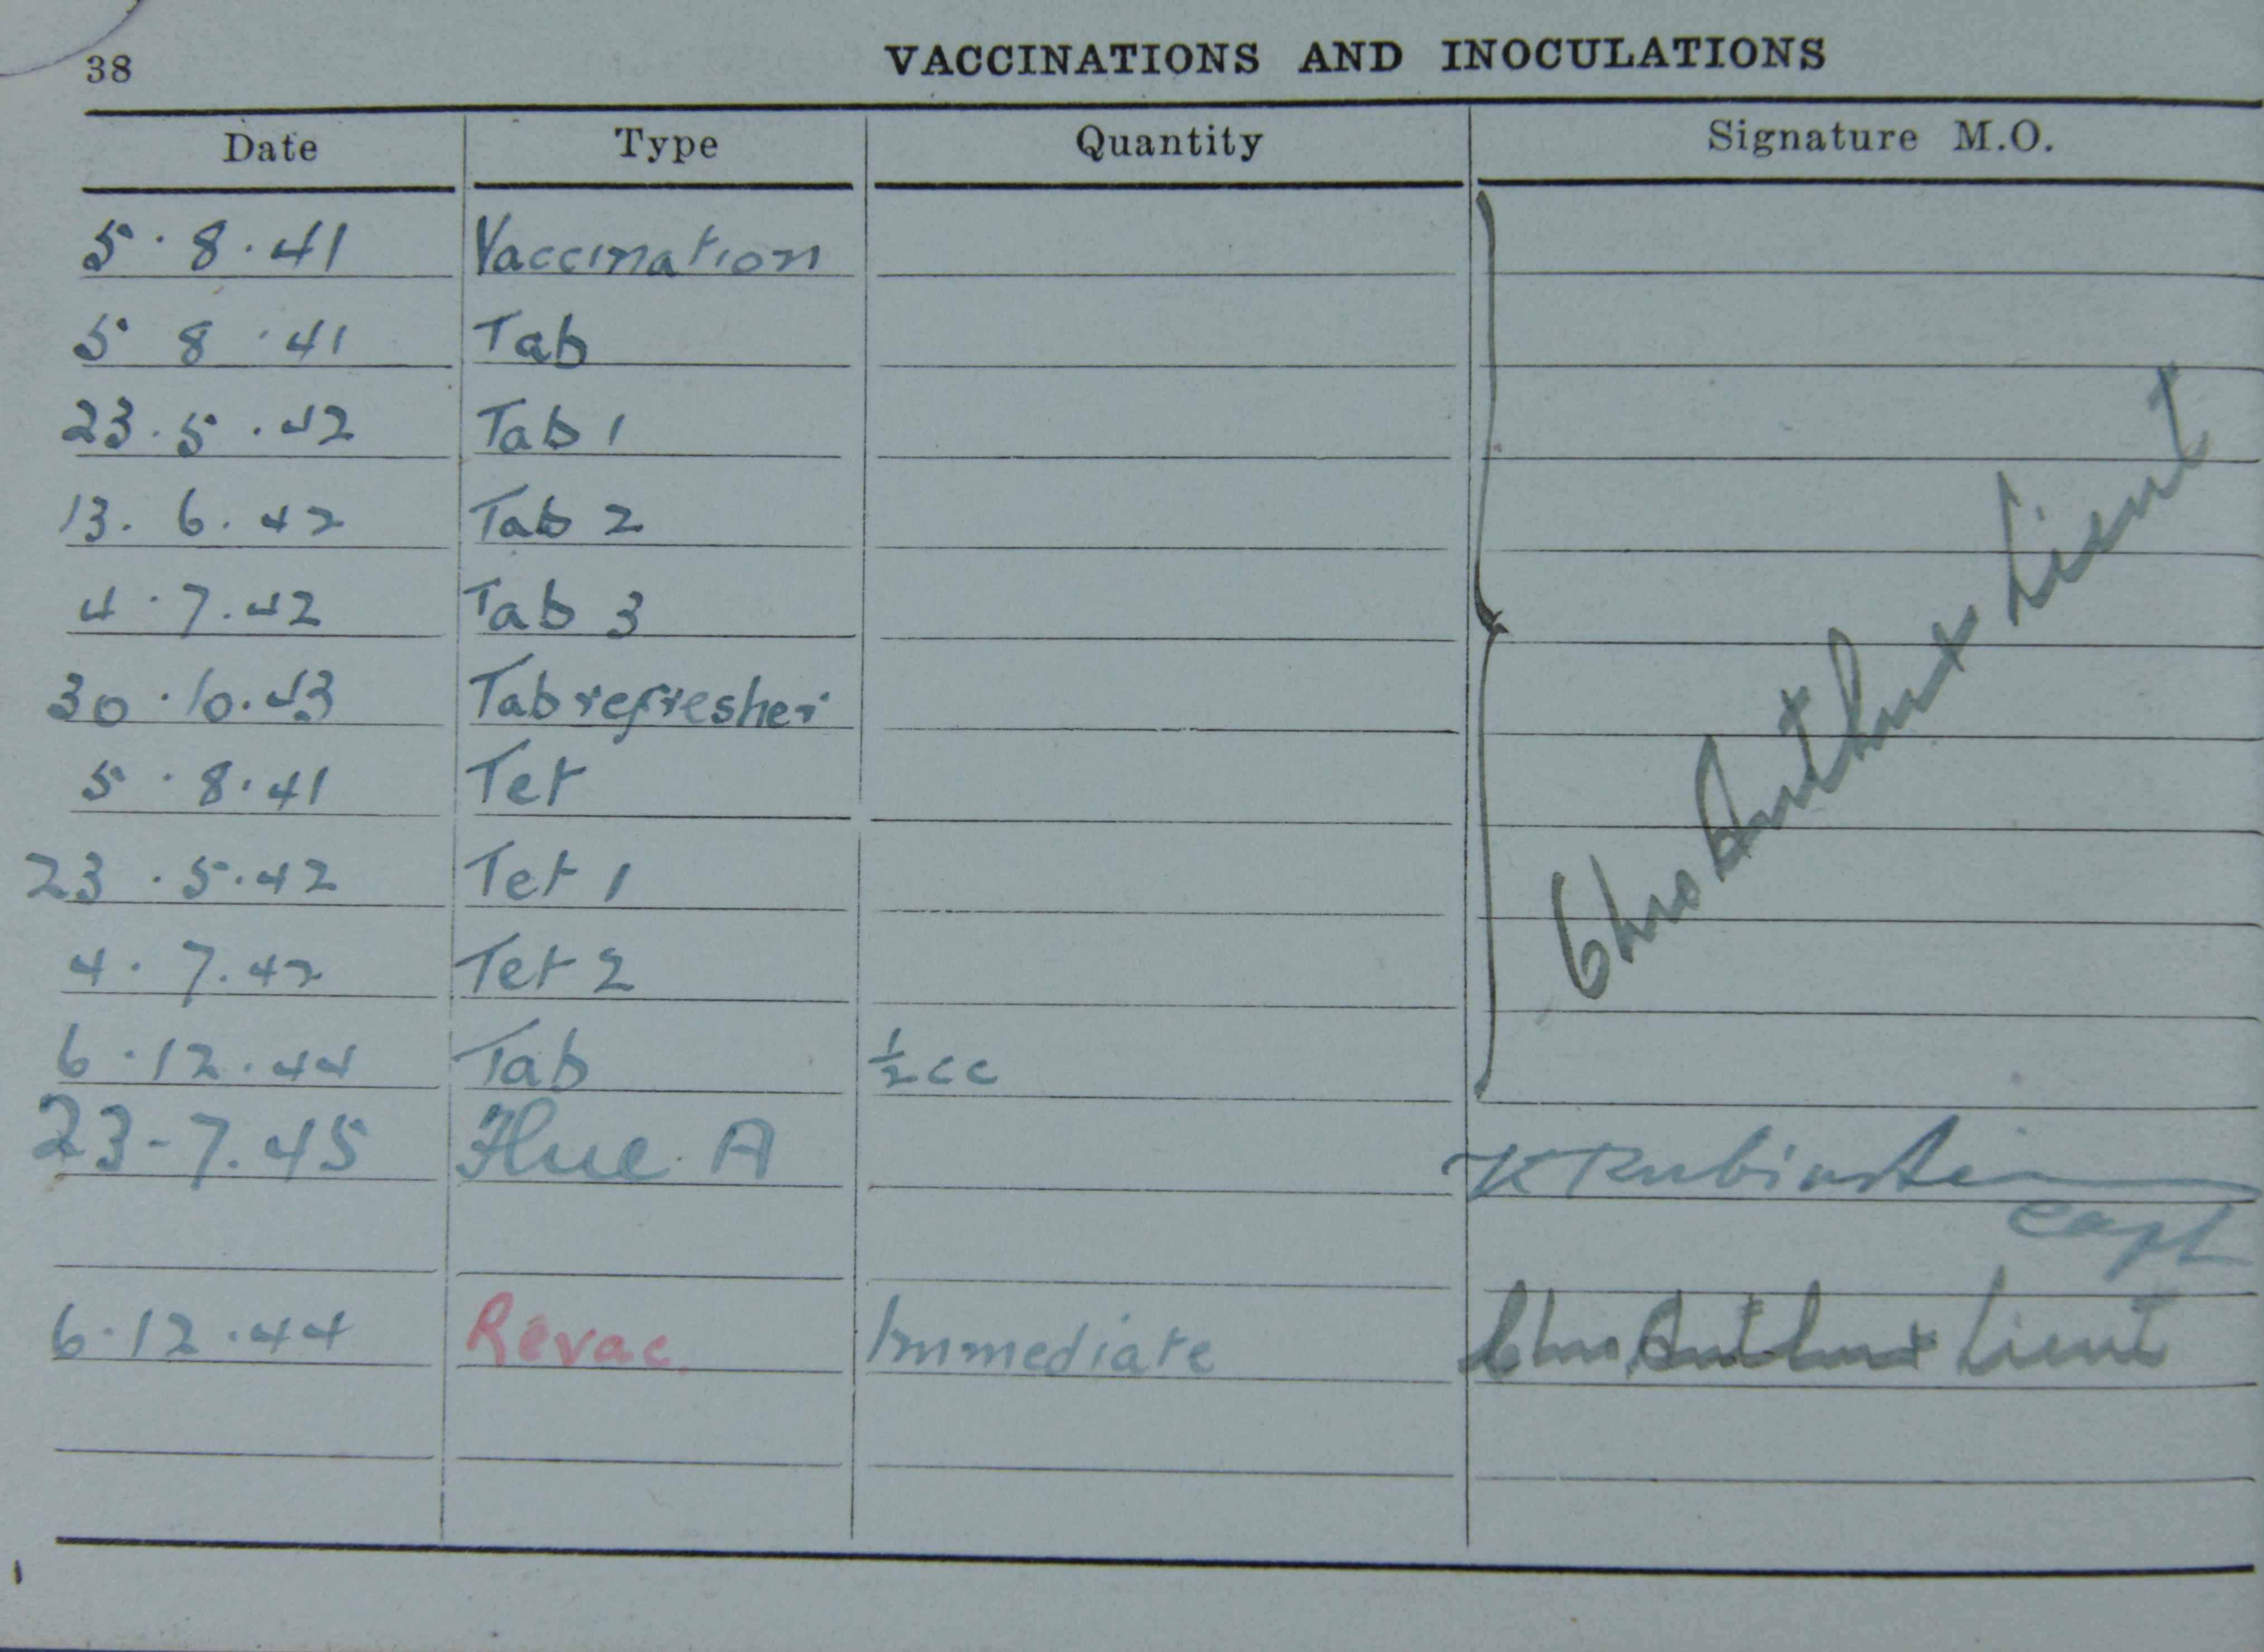 38 VACCINATIONS AND INOCULATIONS
Date Type Quantity Signature M.O.
5.8.41 Vaccination
5 8.41 Tab
23.5.42 Tab 1
13.6.42 Tab 2
4.7.42 Tab 3
30.10.43 Tab refresher
5.8.41 Tet
23.5.42 Tet 1
4.7.42 Tet 2
Lieut
6.12.44 Tab ½cc
23-7.45 Flue A K Rubinstein
Capt
6.12.44 Revac. Immediate Lieut